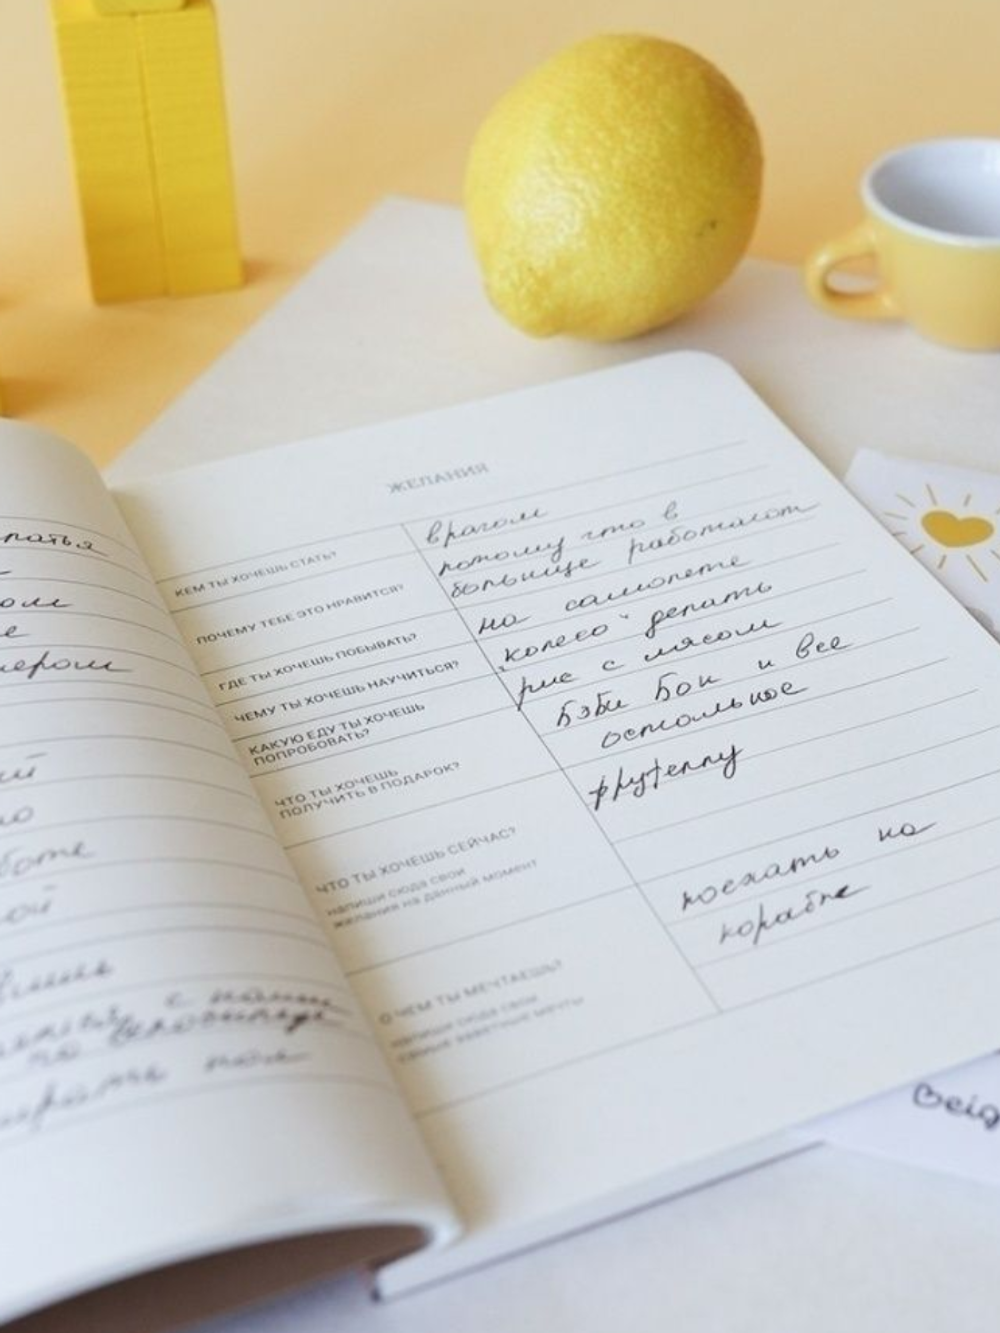 латья
ом
е
нером
ий
но
боте
ой
ЖЕЛАНИЯ
КЕМ ТЫ ХОЧЕШЬ СТАТЬ?
врагом
ПОЧЕМУ ТЕБЕ ЭТО НРАВИТСЯ?
потому что в
больнице работают
ГДЕ ТЫ ХОЧЕШЬ ПОБЫВАТЬ?
на самолете
ЧЕМУ ТЫ ХОЧЕШЬ НАУЧИТЬСЯ?
колесо делать
КАКУЮ ЕДУ ТЫ ХОЧЕШЬ
ПОПРОБОВАТЬ?
рис с мясом
ЧТО ТЫ ХОЧЕШЬ
ПОЛУЧИТЬ В ПОДАРОК?
Бэби Бон и все
остальное
ЧТО ТЫ ХОЧЕШЬ СЕЙЧАС?
напиши сюда свои
желания на данный момент
фрутеллу
О ЧЕМ ТЫ МЕЧТАЕШЬ?
напиши сюда свои
самые заветные мечты
поехать на
корабле